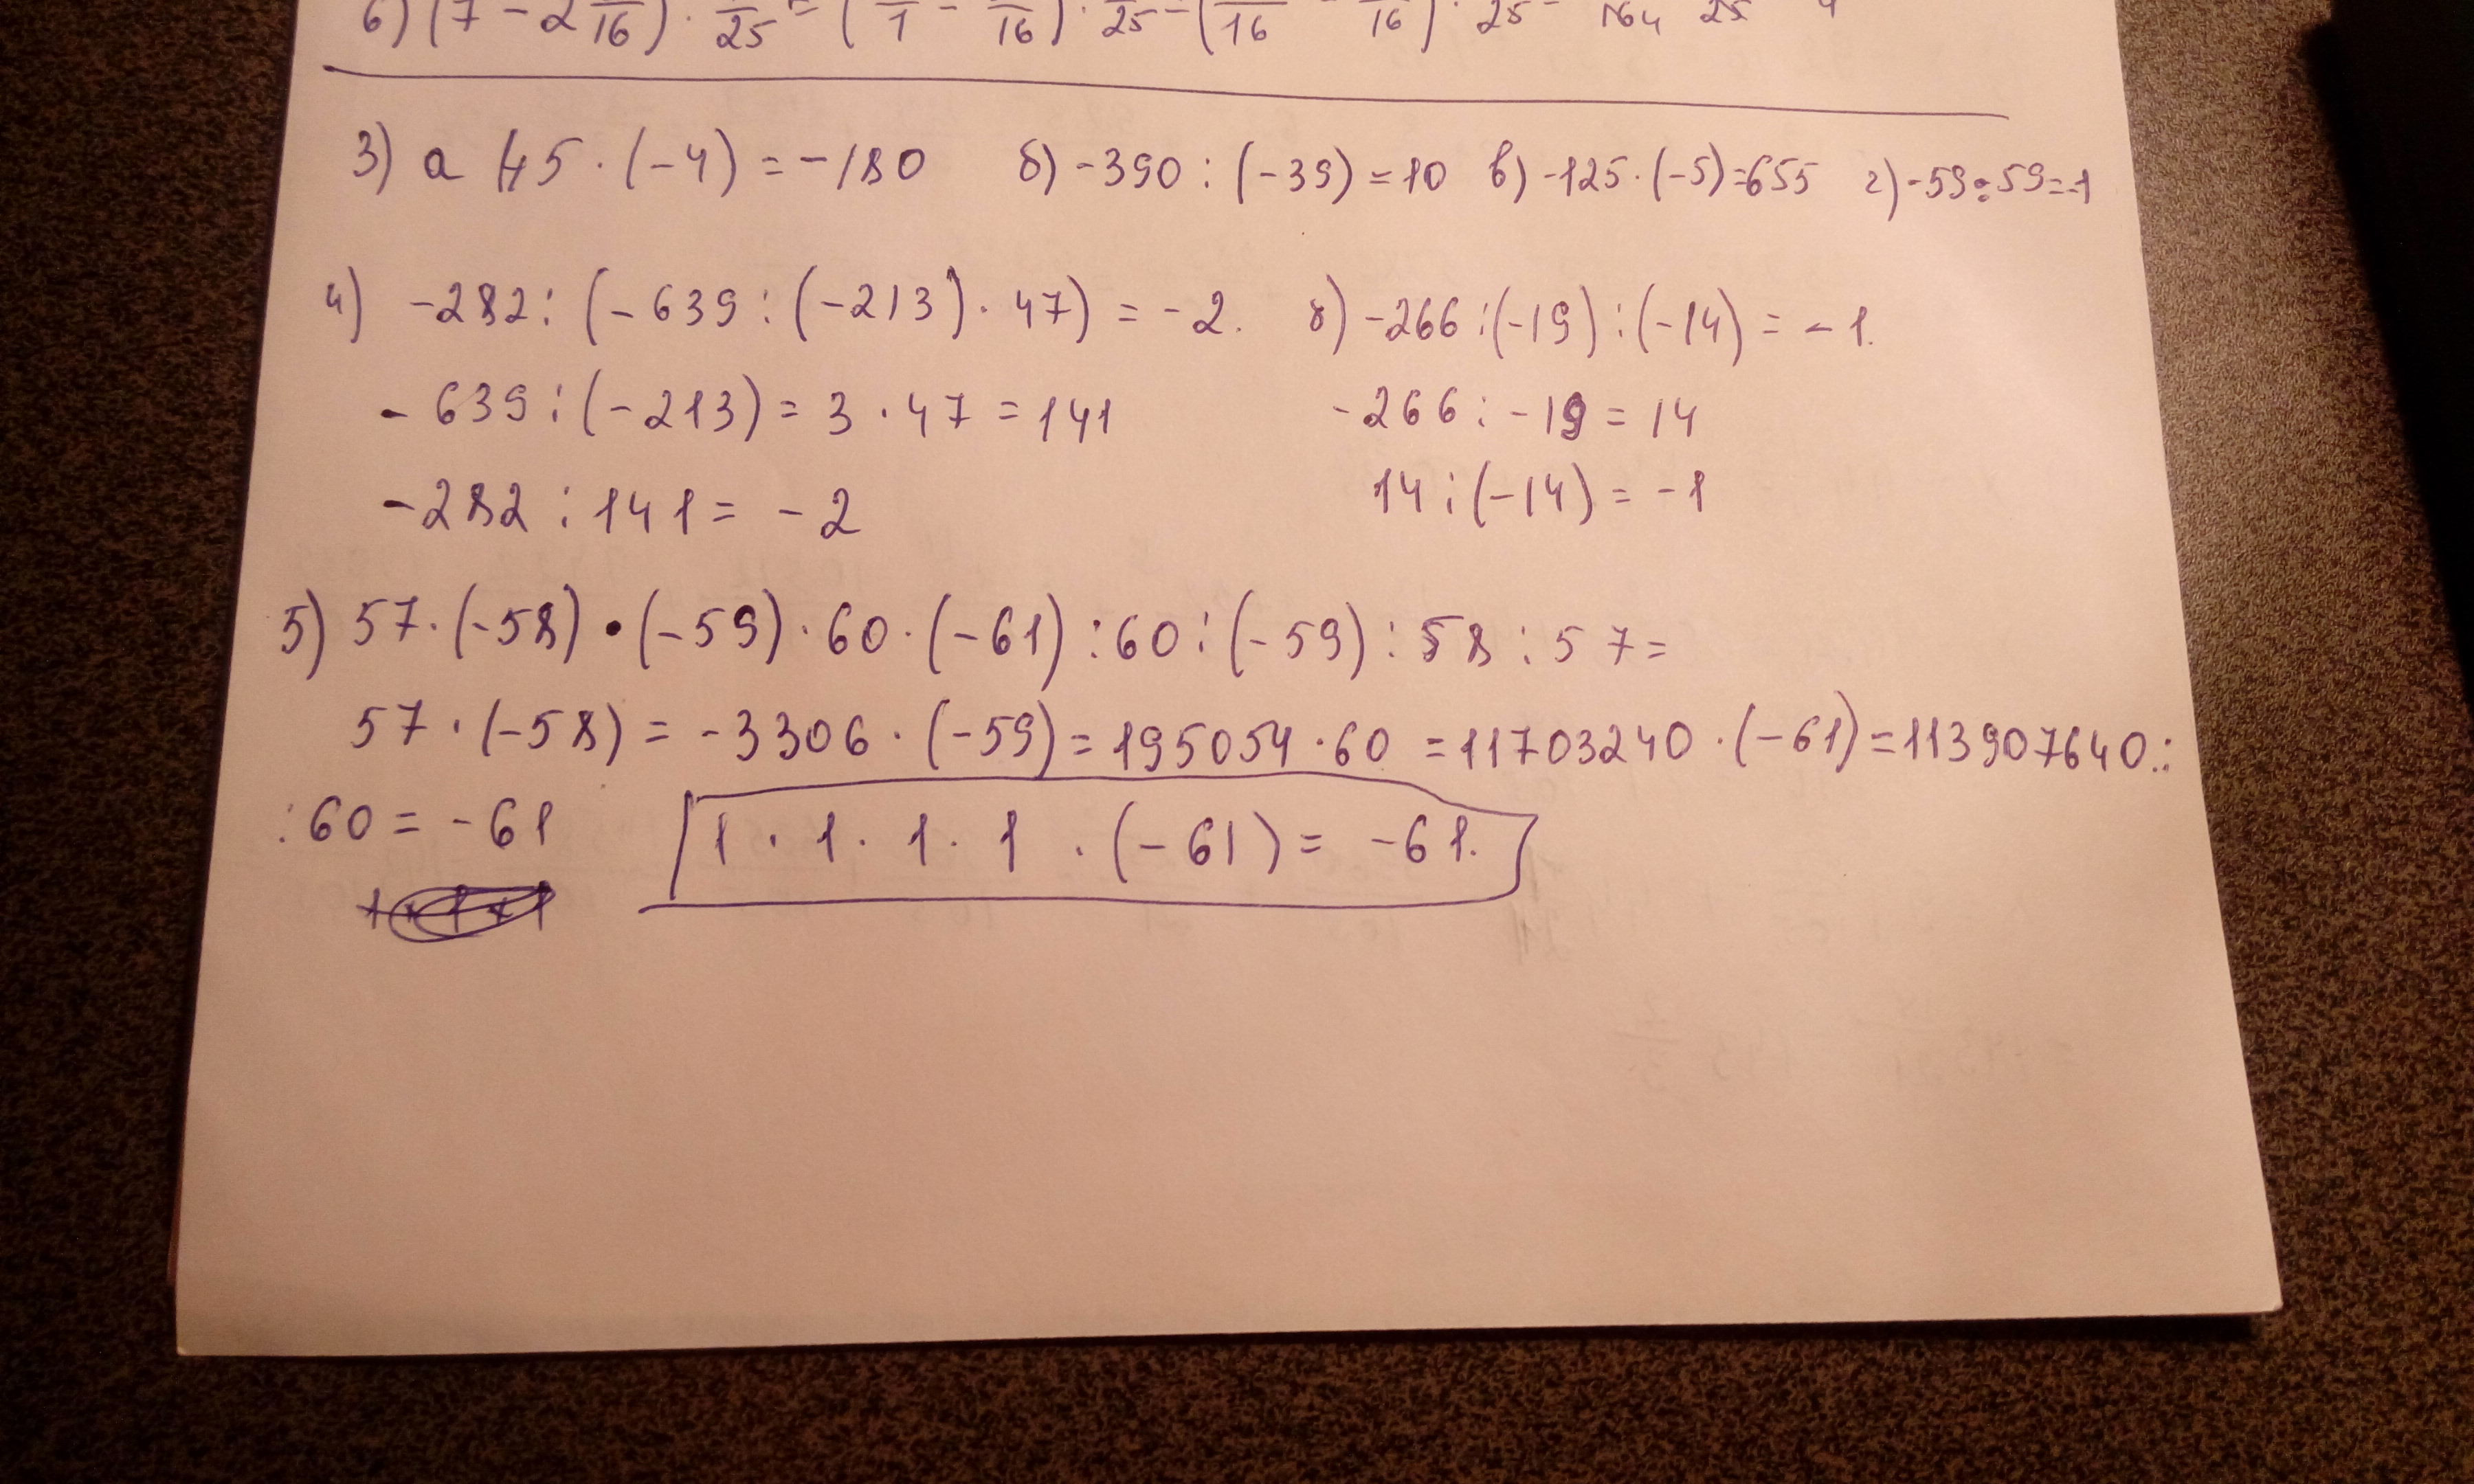 6) (7 - 2 /16) · /25 = ( /1 - /16) · /25 = ( /16 - /16) · /25 =
3) а) 45 · (-4) = -180 б) -390 : (-39) = 10 в) -125 · (-5) = 655 г) -59 : 59 = -1
4) -282 : (-639 : (-213) · 47) = -2. б) -266 : (-19) : (-14) = -1.
-639 : (-213) = 3 · 47 = 141 -266 : -19 = 14
-282 : 141 = -2 14 : (-14) = -1
5) 57 · (-58) · (-59) · 60 · (-61) : 60 : (-59) : 58 : 57 =
57 · (-58) = -3306 · (-59) = 195054 · 60 = 11703240 · (-61) = 113907640 :
: 60 = -61 1 · 1 · 1 · 1 · (-61) = -61.